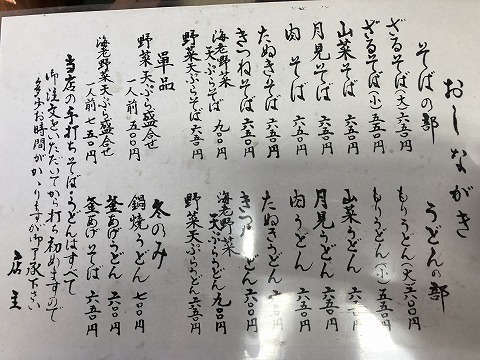 おしながき
そばの部
ざるそば(大)六五〇円
ざるそば(小)五五〇円
山菜そば 六五〇円
月見そば 六五〇円
肉そば 六五〇円
たぬきそば 六五〇円
きつねそば 六五〇円
海老野菜
天ぷらそば 九〇〇円
野菜天ぷらそば 六五〇円
単品
野菜天ぷら盛合せ
一人前 五五〇円
海老野菜天ぷら盛合せ
一人前 七五〇円
うどんの部
もりうどん(大)六〇〇円
もりうどん(小)五五〇円
山菜うどん 六五〇円
月見うどん 六五〇円
肉うどん 六五〇円
たぬきうどん 六〇〇円
きつねうどん 六〇〇円
海老野菜
天ぷらうどん 九〇〇円
野菜天ぷらうどん 六五〇円
冬のみ
鍋焼うどん 七〇〇円
釜あげうどん 六〇〇円
釜あげそば 六五〇円
当店の手打ちそば・うどんはすべて
御注文をいただいてから打ち初めますので
多少お時間がかゝりますが御了承下さい
店主